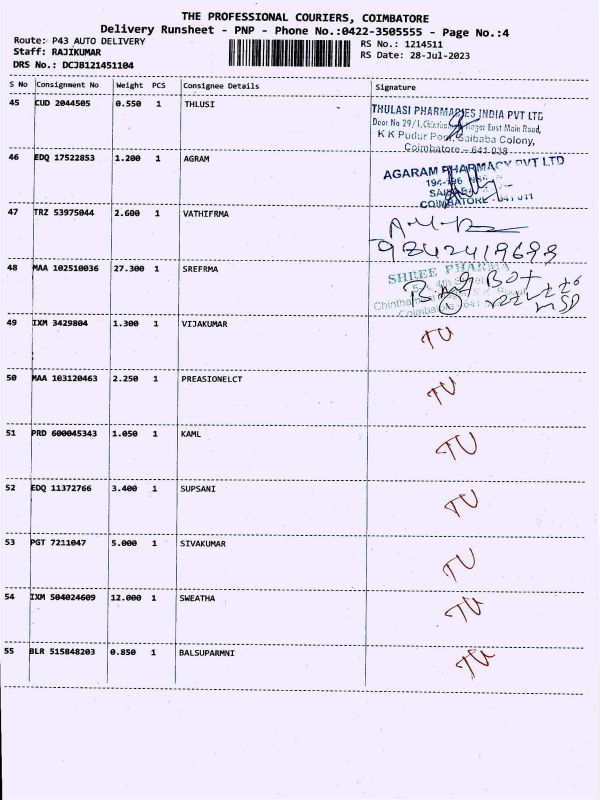 THE PROFESSIONAL COURIERS, COIMBATORE
Delivery Runsheet - PNP - Phone No.:0422-3505555 - Page No.:4
Route: P43 AUTO DELIVERY RS No.: 1214511
Staff: RAJIKUMAR RS Date: 28-Jul-2023
DRS No.: DCJB121451104
S No Consignment No Weight PCS Consignee Details Signature
45 CUD 2044505 0.550 1 THLUSI
THULASI PHARMACIES INDIA PVT LTD
Door No 29/1, Nagar East Main Road,
K K Pudur Post, Saibaba Colony,
Coimbatore - 641 038
46 EDQ 17522853 1.200 1 AGRAM
AGARAM PHARMACY PVT LTD
COIMBATORE - 641 011
47 TRZ 53975044 2.600 1 VATHIFRMA
9842419693
48 MAA 102510036 27.300 1 SREFRMA
SHREE PHARMA
Big Box
49 IXM 3429804 1.300 1 VIJAKUMAR TU
50 MAA 103120463 2.250 1 PREASIONELCT TU
51 PRD 600045343 1.050 1 KAML TU
52 EDQ 11372766 3.400 1 SUPSANI TU
53 PGT 7211047 5.000 1 SIVAKUMAR TU
54 IXM 504024609 12.000 1 SWEATHA TU
55 BLR 515848203 0.850 1 BALSUPARMNI TU